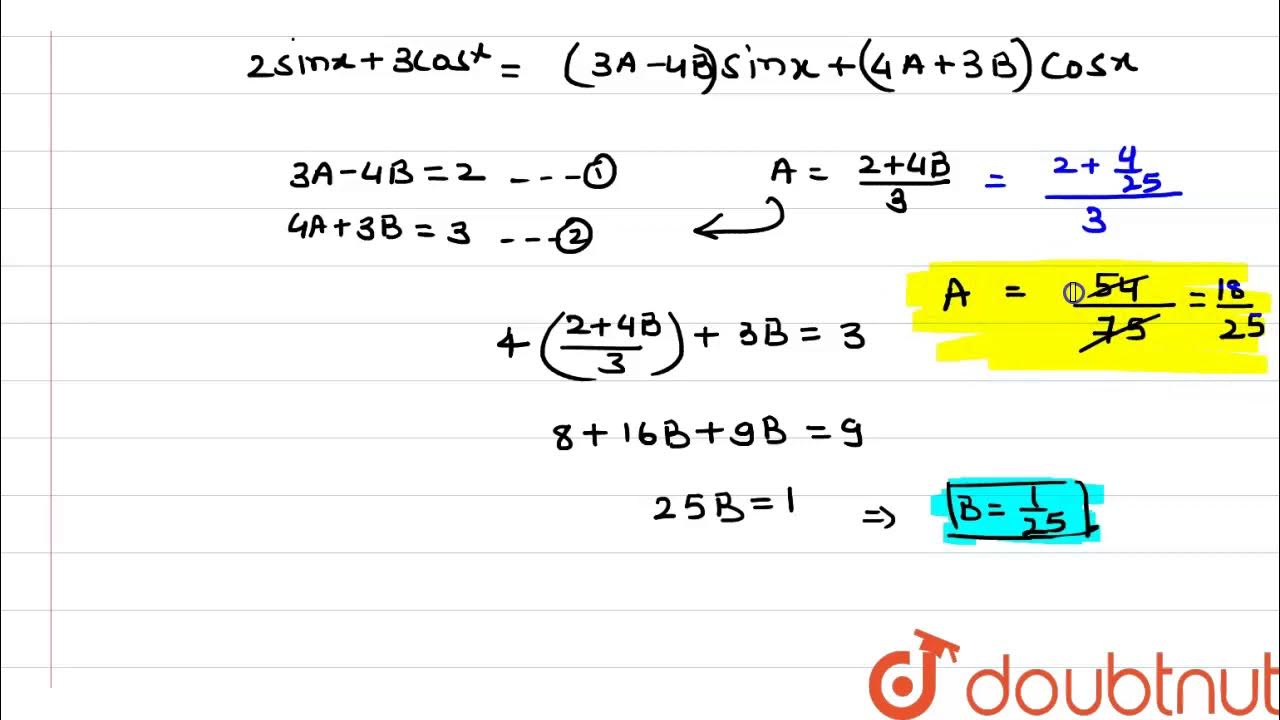 2sinx + 3cosx = (3A-4B)sinx + (4A+3B)cosx
3A-4B = 2 ---①
A = (2+4B)/3 = (2+4/25)/3
4A+3B = 3 ---②
A = 54/75 = 18/25
4((2+4B)/3) + 3B = 3
8+16B+9B = 9
25B = 1 ⇒ B = 1/25
doubtnut